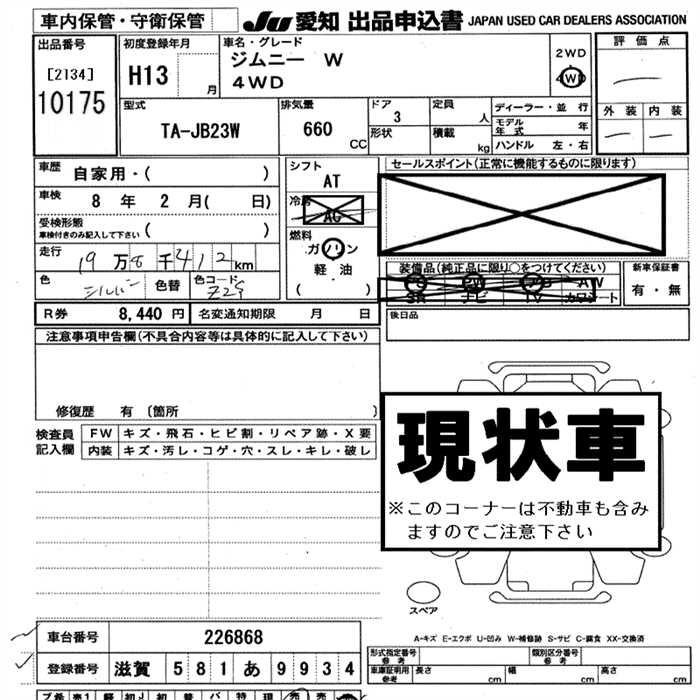 車内保管・守衛保管 JU 愛知 出品申込書 JAPAN USED CAR DEALERS ASSOCIATION
出品番号 初度登録年月 車名・グレード 評価点
[2134] H13 月 ジムニー W 2WD
10175 4WD 4WD
外装 内装
型式 排気量 ドア 定員 ディーラー・並行
TA-JB23W 660 CC 3 人 モデル年式 年
形状 積載 kg ハンドル 左・右
車歴 自家用・( ) シフト セールスポイント(正常に機能するものに限ります)
AT
車検 8 年 2 月( 日) 冷房 AC
受検形態 車検付きのみ記入して下さい ( ) 燃料
走行 19万8千412km ガソリン
軽油
装備品(純正品に限り○をつけてください) 新車保証書
色 シルバー 色替 色コード Z2S ( ) PS PW AW 有・無
SR ナビ TV カワシート
R券 8,440 円 名変通知期限 月 日 後日品
注意事項申告欄(不具合内容等は具体的に記入して下さい)
修復歴 有 〔箇所 〕
検査員記入欄 FW キズ・飛石・ヒビ割・リペア跡・X要
内装 キズ・汚レ・コゲ・穴・スレ・キレ・破レ
現状車
※このコーナーは不動車も含み
ますのでご注意下さい
スペア
A-キズ E-エクボ U-凹み W-補修跡 S-サビ C-腐食 XX-交換済
車台番号 226868 形式指定番号 参考 類別区分番号 参考
登録番号 滋賀 581 あ 9934 車庫証明用 参考 長さ cm 幅 cm 高さ cm